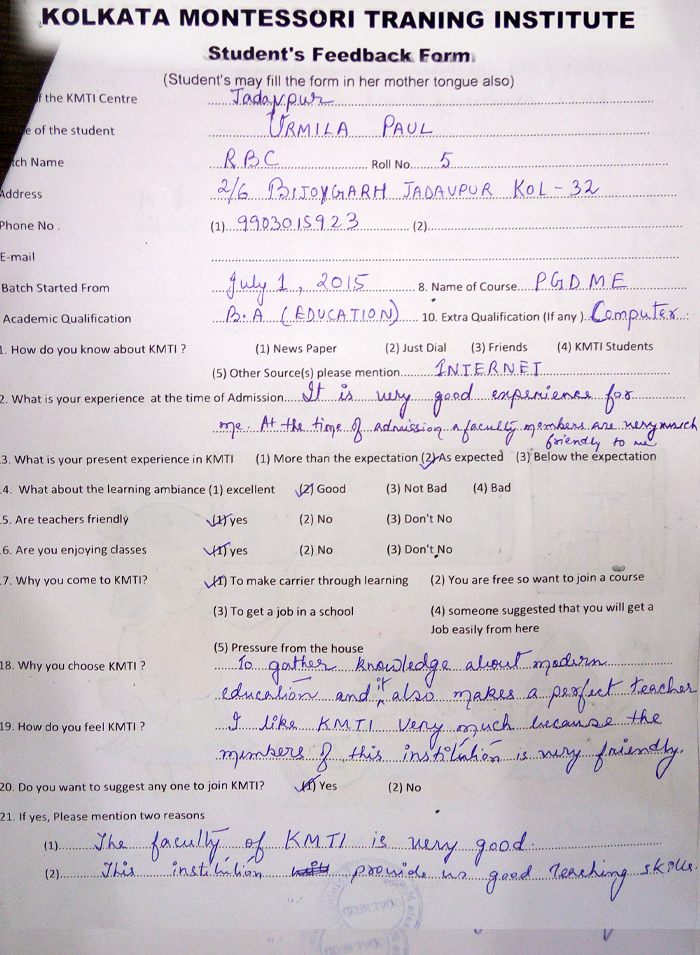 KOLKATA MONTESSORI TRANING INSTITUTE
Student's Feedback Form
(Student's may fill the form in her mother tongue also)
f the KMTI Centre Jadavpur
e of the student URMILA PAUL
tch Name RBC Roll No. 5
Address 2/6 BIJOYGARH JADAVPUR KOL-32
Phone No. (1) 9903015923 (2)
E-mail
Batch Started From July 1, 2015 8. Name of Course PGDME
Academic Qualification B.A (EDUCATION) 10. Extra Qualification (If any) Computer
1. How do you know about KMTI ? (1) News Paper (2) Just Dial (3) Friends (4) KMTI Students
(5) Other Source(s) please mention INTERNET
2. What is your experience at the time of Admission It is very good experience for
me. At the time of admission a faculty members are very much
friendly to me
3. What is your present experience in KMTI (1) More than the expectation (2) As expected (3) Below the expectation
4. What about the learning ambiance (1) excellent (2) Good (3) Not Bad (4) Bad
5. Are teachers friendly (1) yes (2) No (3) Don't No
6. Are you enjoying classes (1) yes (2) No (3) Don't No
7. Why you come to KMTI? (1) To make carrier through learning (2) You are free so want to join a course
(3) To get a job in a school (4) someone suggested that you will get a
Job easily from here
(5) Pressure from the house
18. Why you choose KMTI ? To gather knowledge about modern
education and it also makes a perfect teacher
19. How do you feel KMTI ? I like KMTI very much because the
members of this institution is very friendly.
20. Do you want to suggest any one to join KMTI? (1) Yes (2) No
21. If yes, Please mention two reasons
(1) The faculty of KMTI is very good.
(2) This institution provide us good teaching skills.